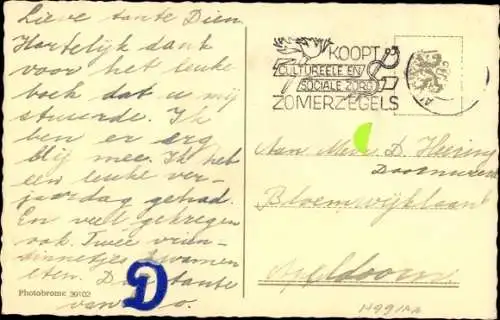 Lieve tante Dien.
Hartelijk dank
voor het leuke
boek dat u mij
stuurde. Ik
ben er erg
blij mee. Ik heb
een leuke ver-
jaardag gehad.
En veel gekregen
ook. Twee vrien-
dinnetjes kwamen
eten. Dag tante
van
Photobromc 39102
KOOPT
CULTUREELE EN
SOCIALE ZORG
ZOMERZEGELS
Aan Mevr. D. Heering
Bloemwijklaan
Apeldoorn.
D